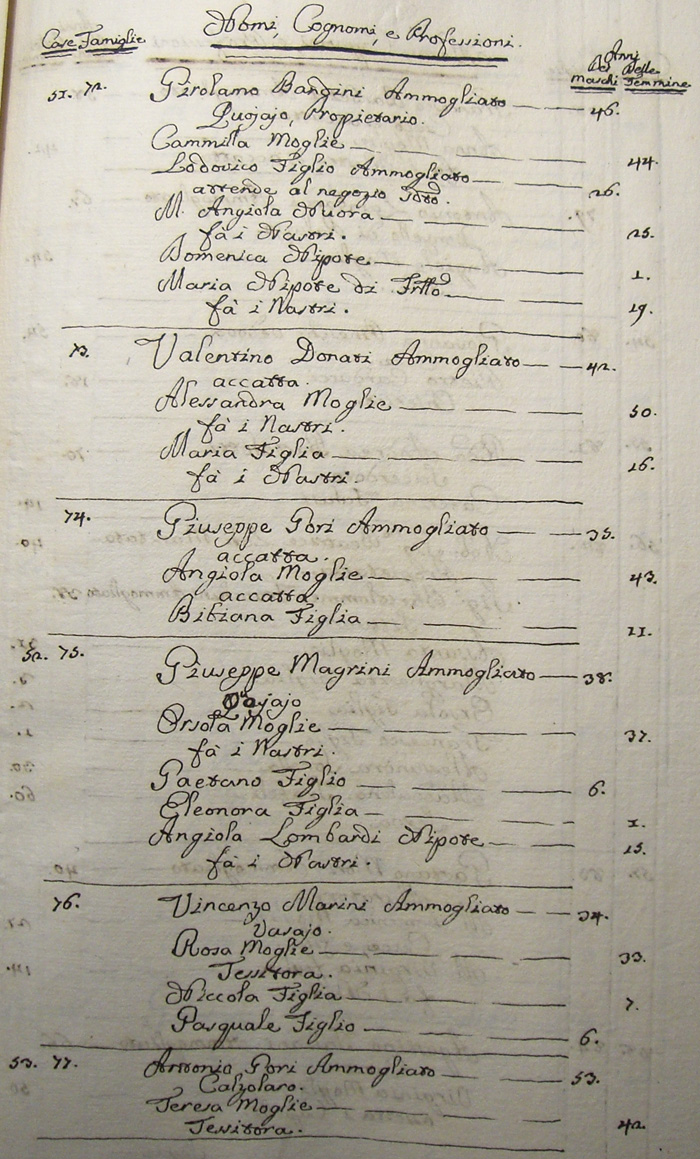 Nomi, Cognomi, e Professioni.
Case Famiglie
Anni
Dei Delle
maschi Femmine
51. 72. Girolamo Bandini Ammogliato 46.
Quojajo, Propietario.
Cammilla Moglie 44.
Lodovico Figlio Ammogliato 26.
attende al negozio
M. Angiola Nuora 25.
fà i Nastri.
Domenica Nipote 1.
Maria Nipote di 19.
fà i Nastri.
73. Valentino Donati Ammogliato 42.
accatta.
Alessandra Moglie 50.
fà i Nastri.
Maria Figlia 16.
fà i Nastri
74. Giuseppe Gori Ammogliato 35.
accatta.
Angiola Moglie 43.
accatta.
Bibiana Figlia 11.
52. 75. Giuseppe Magrini Ammogliato 38.
Orsola Moglie 37.
fà i Nastri.
Gaetano Figlio 6.
Eleonora Figlia 1.
Angiola Lombardi Nipote 15.
fà i Nastri.
76. Vincenzo Marini Ammogliato 34.
Vasajo.
Rosa Moglie 33.
Tessitora.
Niccola Figlia 7.
Pasquale Figlio 6.
53. 77. Antonio Gori Ammogliato 53.
Calzolaro.
Teresa Moglie 42.
Tessitora.